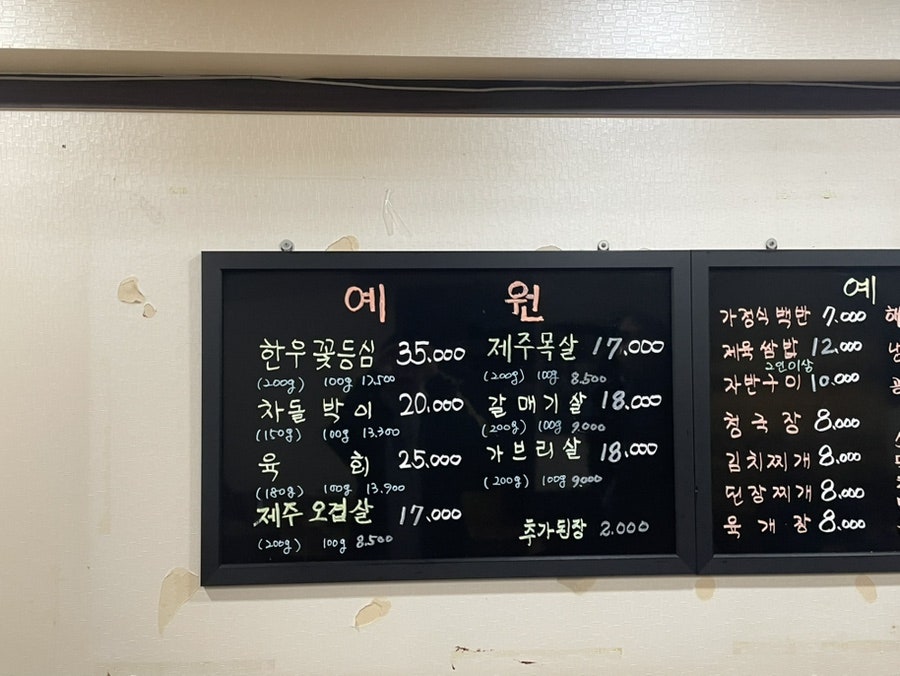 예 원
한우꽃등심 35.000
(200g) 100g 17.500
차돌박이 20.000
(150g) 100g 13.300
육회 25.000
(180g) 100g 13.900
제주오겹살 17.000
(200g) 100g 8.500
제주목살 17.000
(200g) 100g 8.500
갈매기살 18.000
(200g) 100g 9.000
가브리살 18.000
(200g) 100g 9.000
추가된장 2.000
예
가정식백반 7.000
제육쌈밥 12.000
2인이상
자반구이 10.000
청국장 8.000
김치찌개 8.000
된장찌개 8.000
육개장 8.000